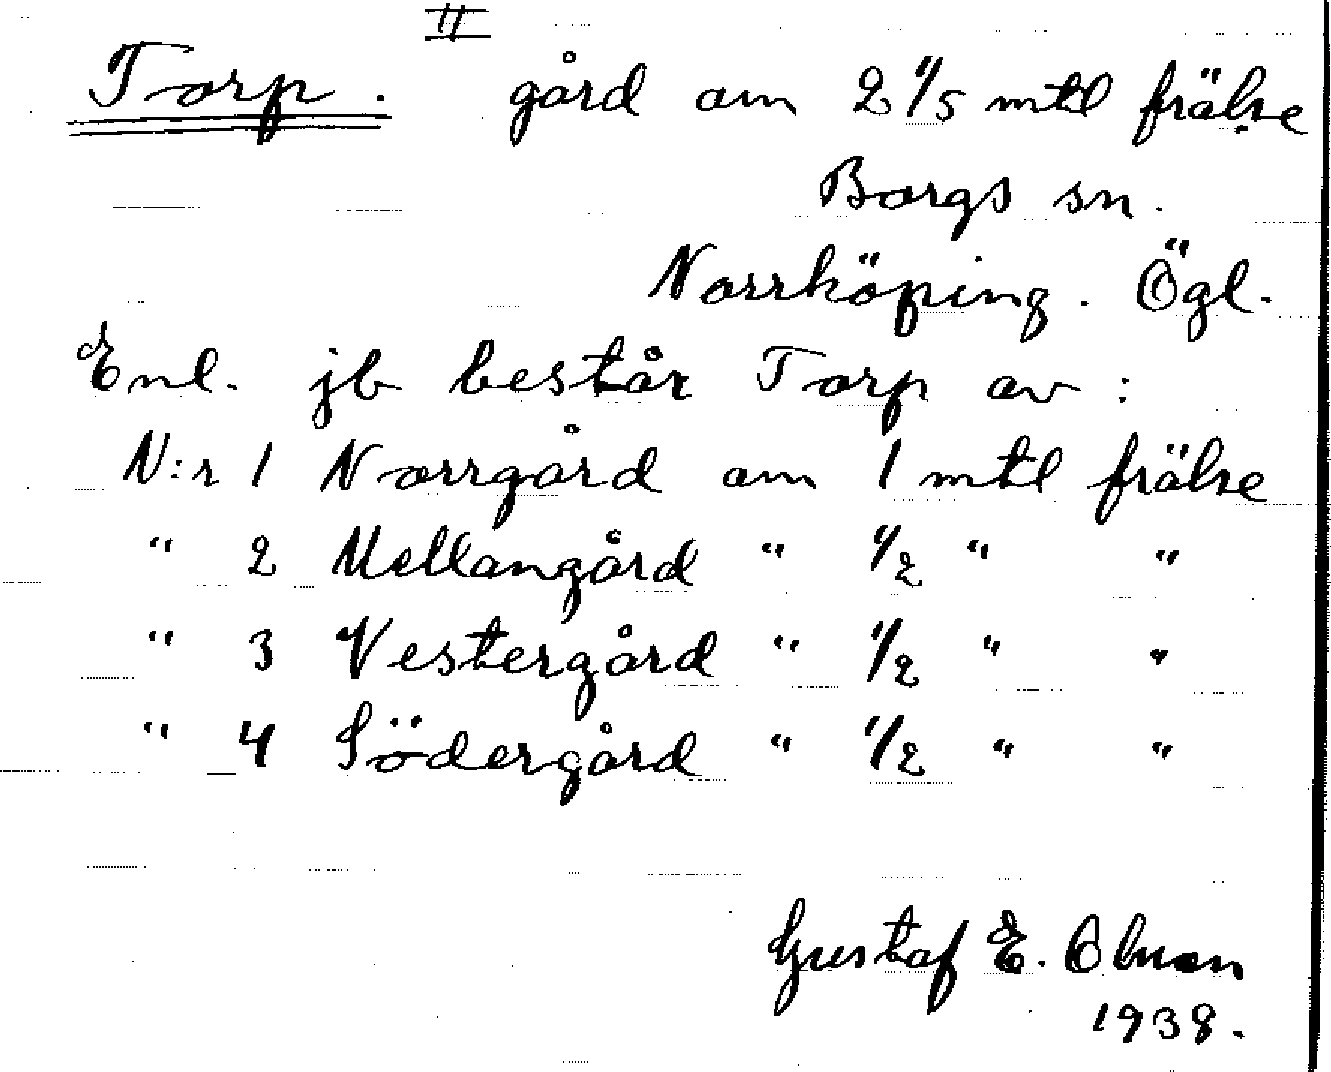 II
Torp. gård om 2 1/5 mtl frälse
Borgs sn.
Norrköping. Ögl.
Enl. jb består Torp av:
N:r 1 Norrgård om 1 mtl frälse
" 2 Mellangård " 1/2 " "
" 3 Vestergård " 1/2 " "
" 4 Södergård " 1/2 " "
Gustaf E.
1938.